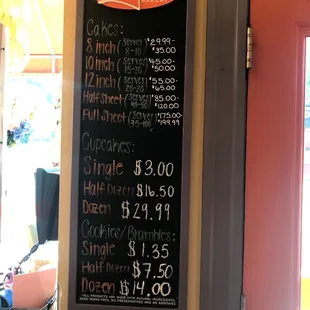 BAKERY
Cakes:
8 inch (serves 8-10) $29.99-$35.00
10 inch (serves 15-20) $45.00-$50.00
12 inch (serves 25-35) $55.00-$65.00
Half sheet (serves) $85.00-$120.00
Full sheet (serves) $175.00-$199.99
Cupcakes:
Single $3.00
Half Dozen $16.50
Dozen $29.99
Cookies/Brambles:
Single $1.35
Half Dozen $7.50
Dozen $14.00
*ALL PRODUCTS ARE MADE WITH NATURAL INGREDIENTS,
ZERO TRANS FATS, NO PRESERVATIVES AND NO ADDITIVES